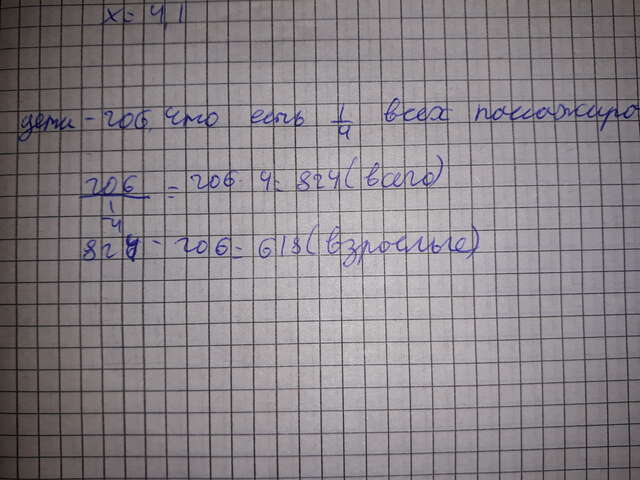 x = 4,1
дети - 206, что есть 1/4 всех пассажиро
206 / 1/4 = 206 · 4 = 824 (всего)
824 - 206 = 618 (взрослые)